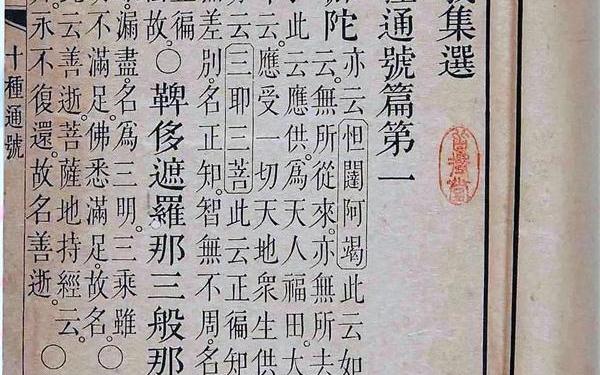 集選
通號篇第一
陀亦云怛闥阿竭此云如
云無所從來。亦無所去
此云應供。為天人福田。大
云應受一切天地眾生供
云三耶三菩此云正徧知
差別。名正知。智無不周。名
徧
故。〇鞞侈遮羅那三般那
漏盡。名為三明。三乘雖
不滿足。佛悉滿足故名。
此云善逝。菩薩地持經云。
永不復還。故名善逝。〇
十種通號